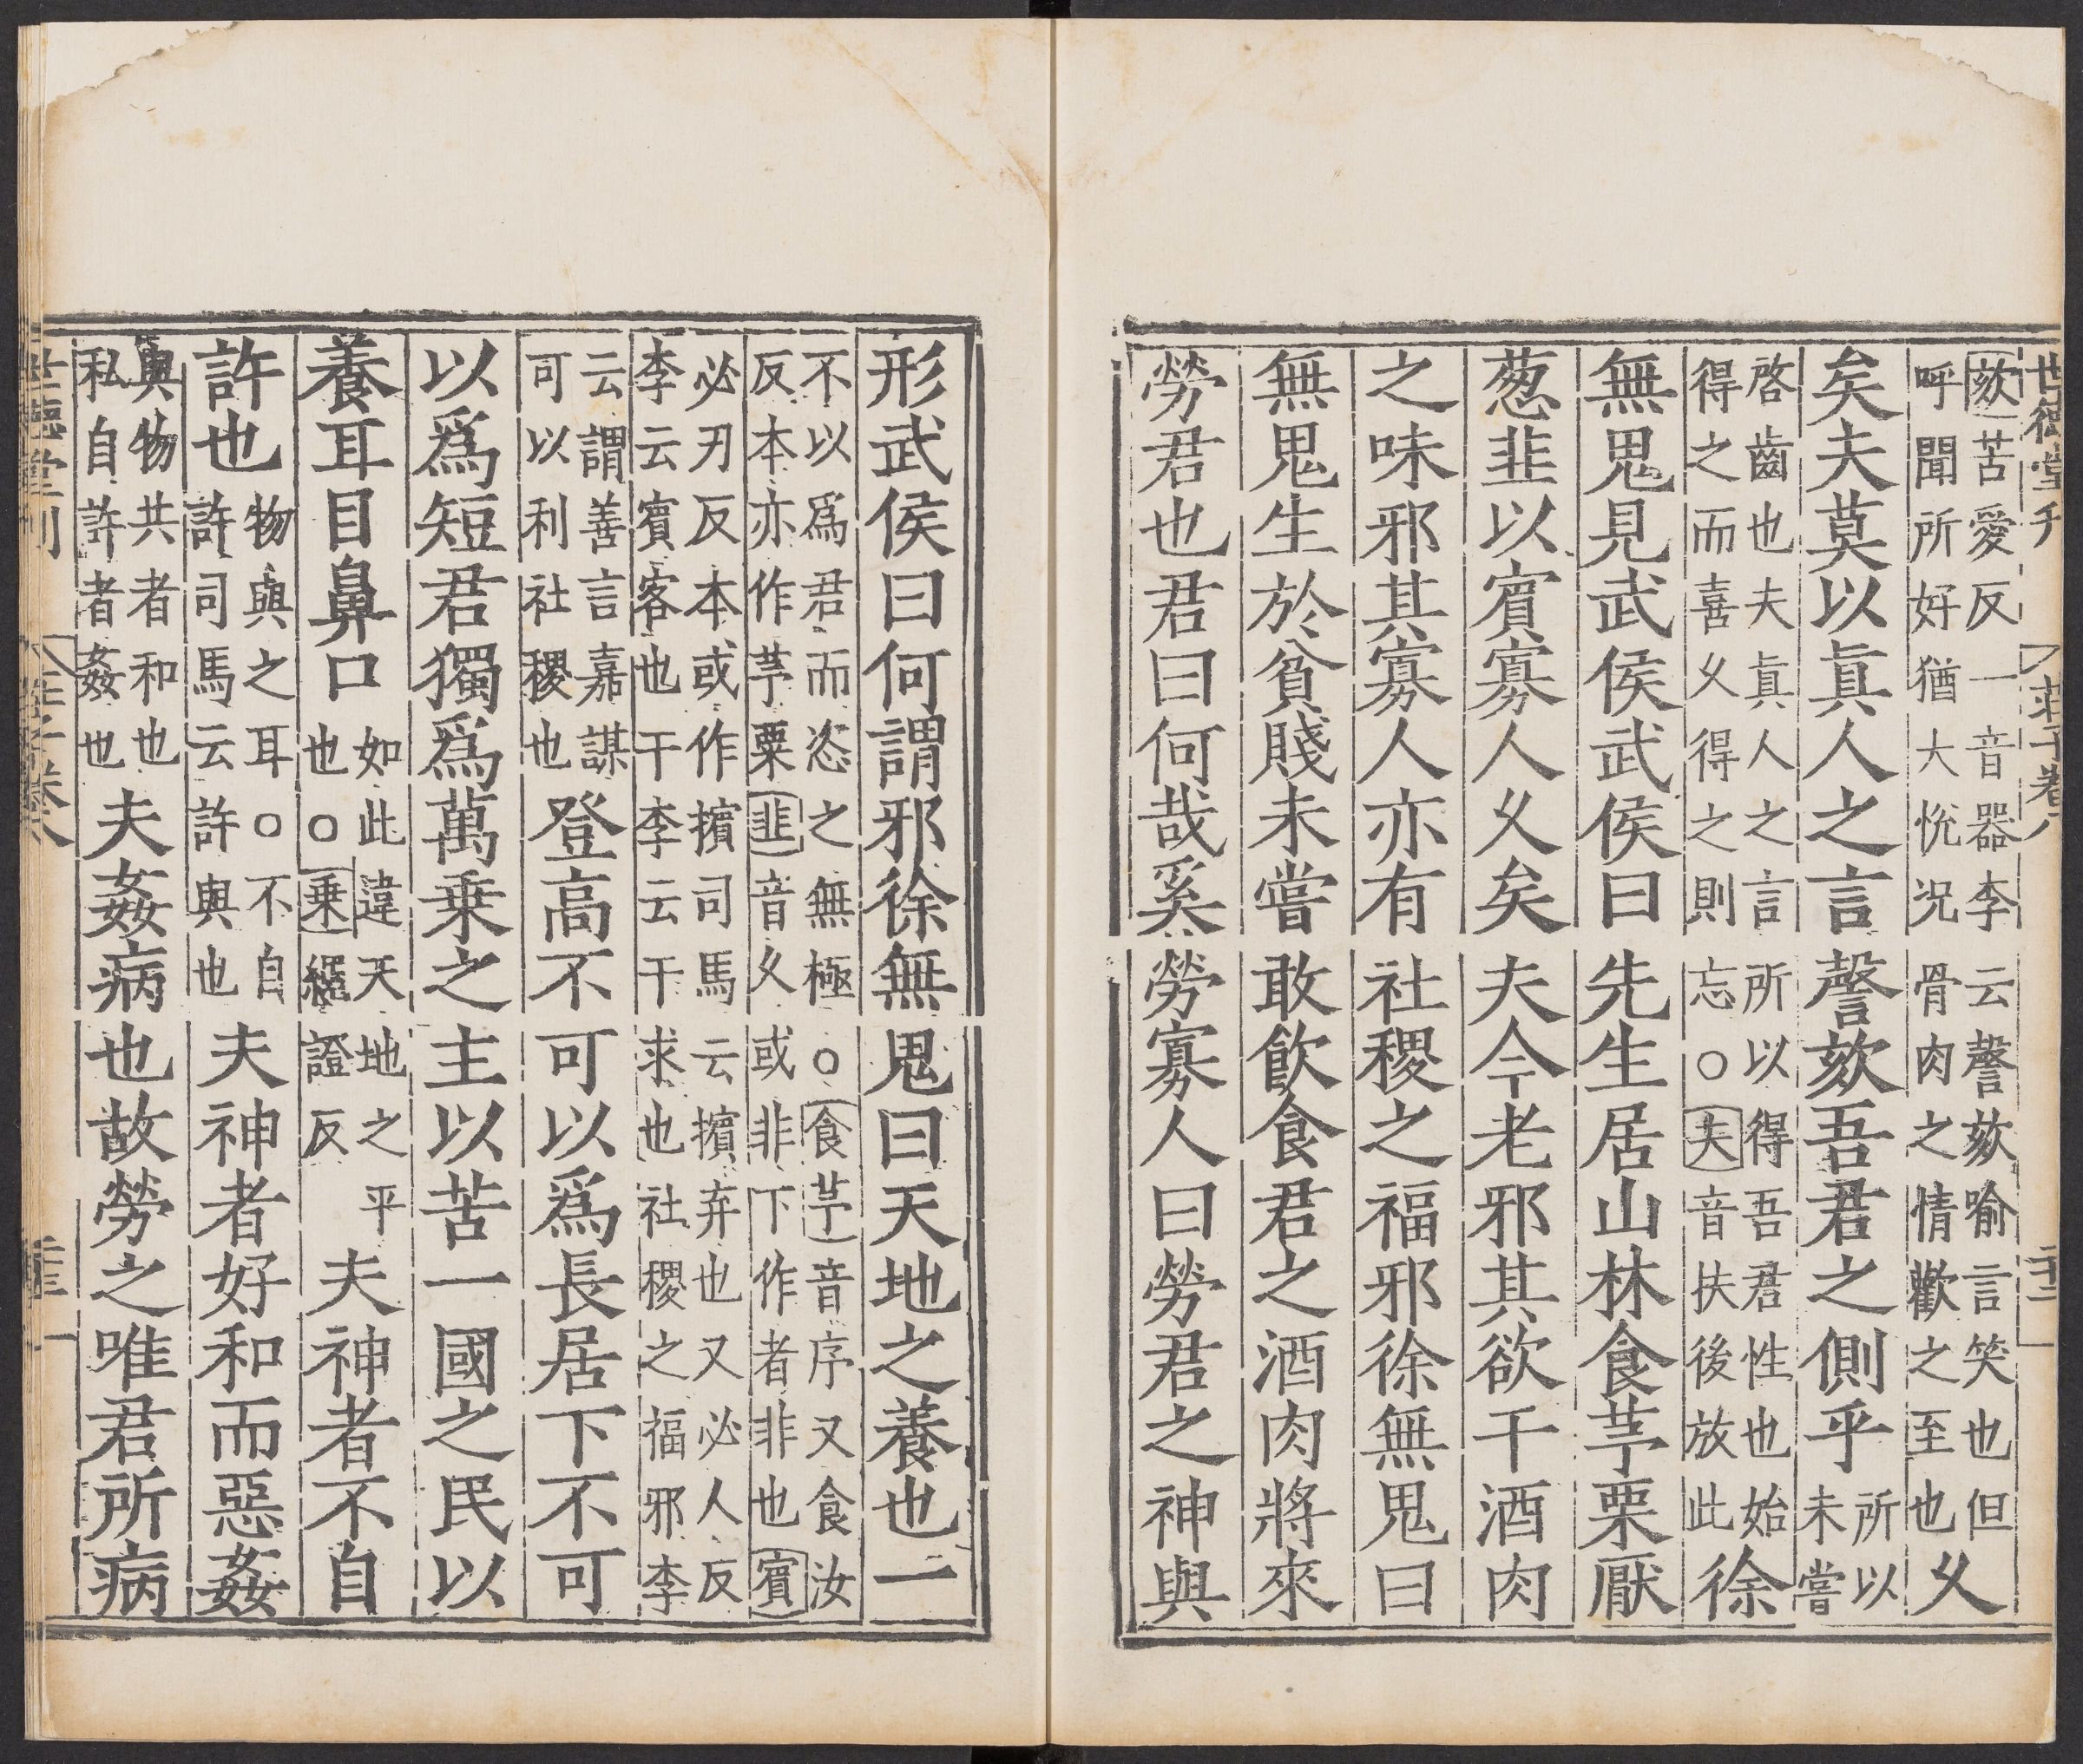 世德堂刊 莊子卷八
欬苦愛反一音器李云謦欬喻言笑也但
呼聞所好猶大悅况骨肉之情歡之至也
久
矣夫莫以眞人之言謦欬吾君之側乎
所以
未嘗
啓齒也夫眞人之言所以得吾君性也始
得之而喜久得之則忘○夫音扶後放此
徐
無鬼見武侯武侯曰先生居山林食芧栗厭
葱韭以賓寡人久矣夫今老邪其欲干酒肉
之味邪其寡人亦有社稷之福邪徐無鬼曰
無鬼生於貧賤未嘗敢飲食君之酒肉將來
勞君也君曰何哉奚勞寡人曰勞君之神與
形武侯曰何謂邪徐無鬼曰天地之養也一
不以爲君而恣之無極○食芧音序又食汝
反本亦作芧粟韭音久或非下作者非也賓
必刃反本或作擯司馬云擯弃也又必人反
李云賓客也干李云干求也社稷之福邪李
云謂善言嘉謀
可以利社稷也
登高不可以爲長居下不可
以爲短君獨爲萬乗之主以苦一國之民以
養耳目鼻口
如此違天地之平
也○乗繩證反
夫神者不自
許也
物與之耳○不自
許司馬云許與也
夫神者好和而惡姦
與物共者和也
私自許者姦也
夫姦病也故勞之唯君所病
世德堂刊 莊子卷八